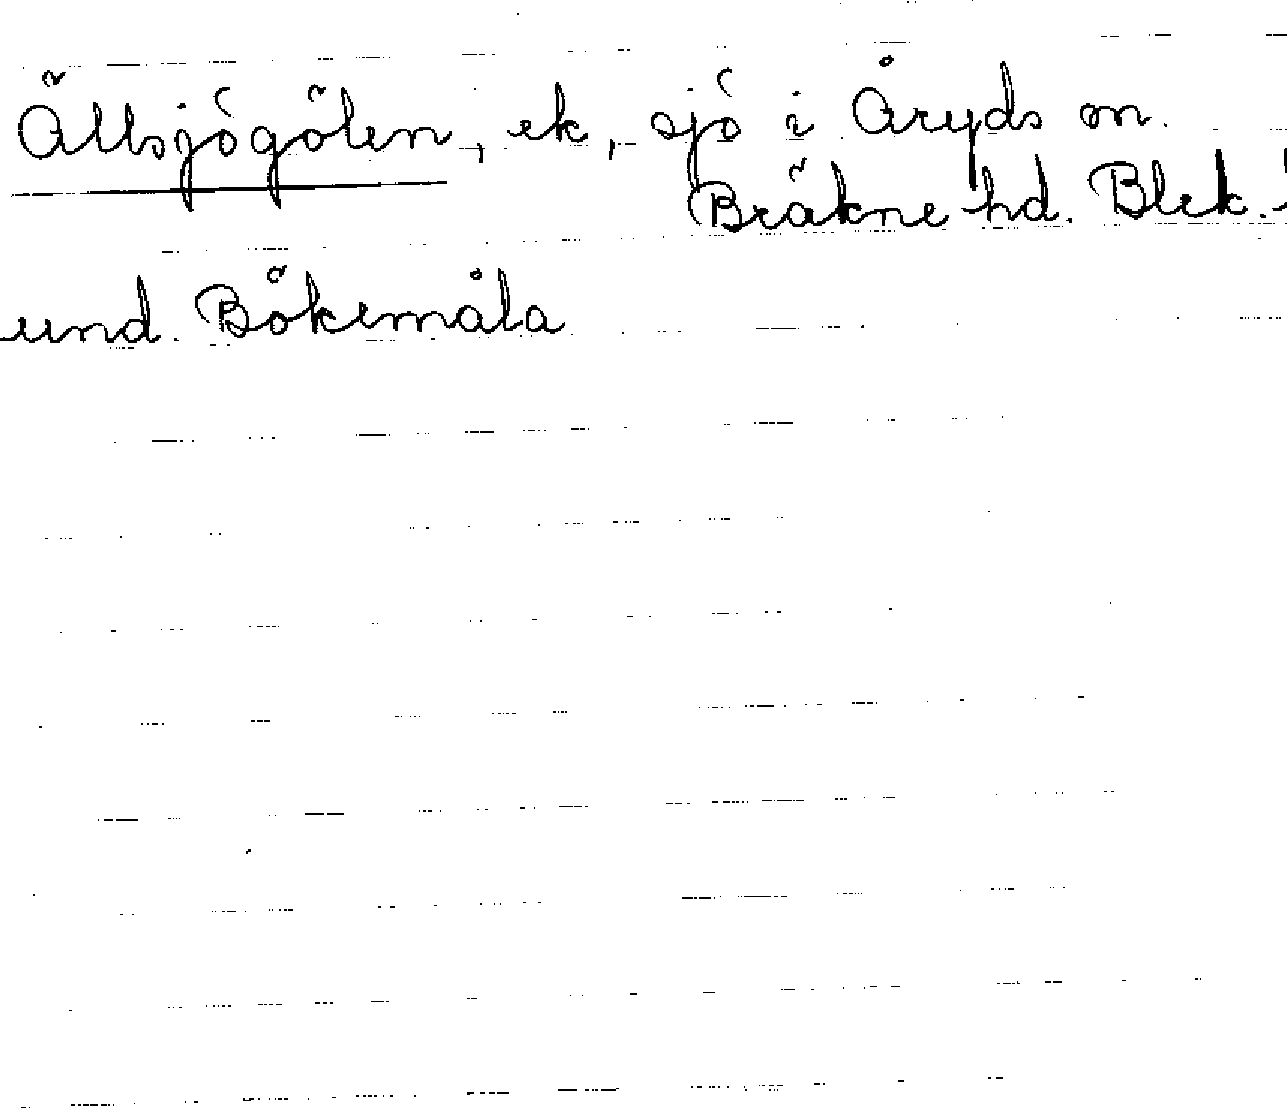 Ällsjögölen, ek, sjö i Åryds sn.
Bräkne hd. Blek.
und. Bökemåla